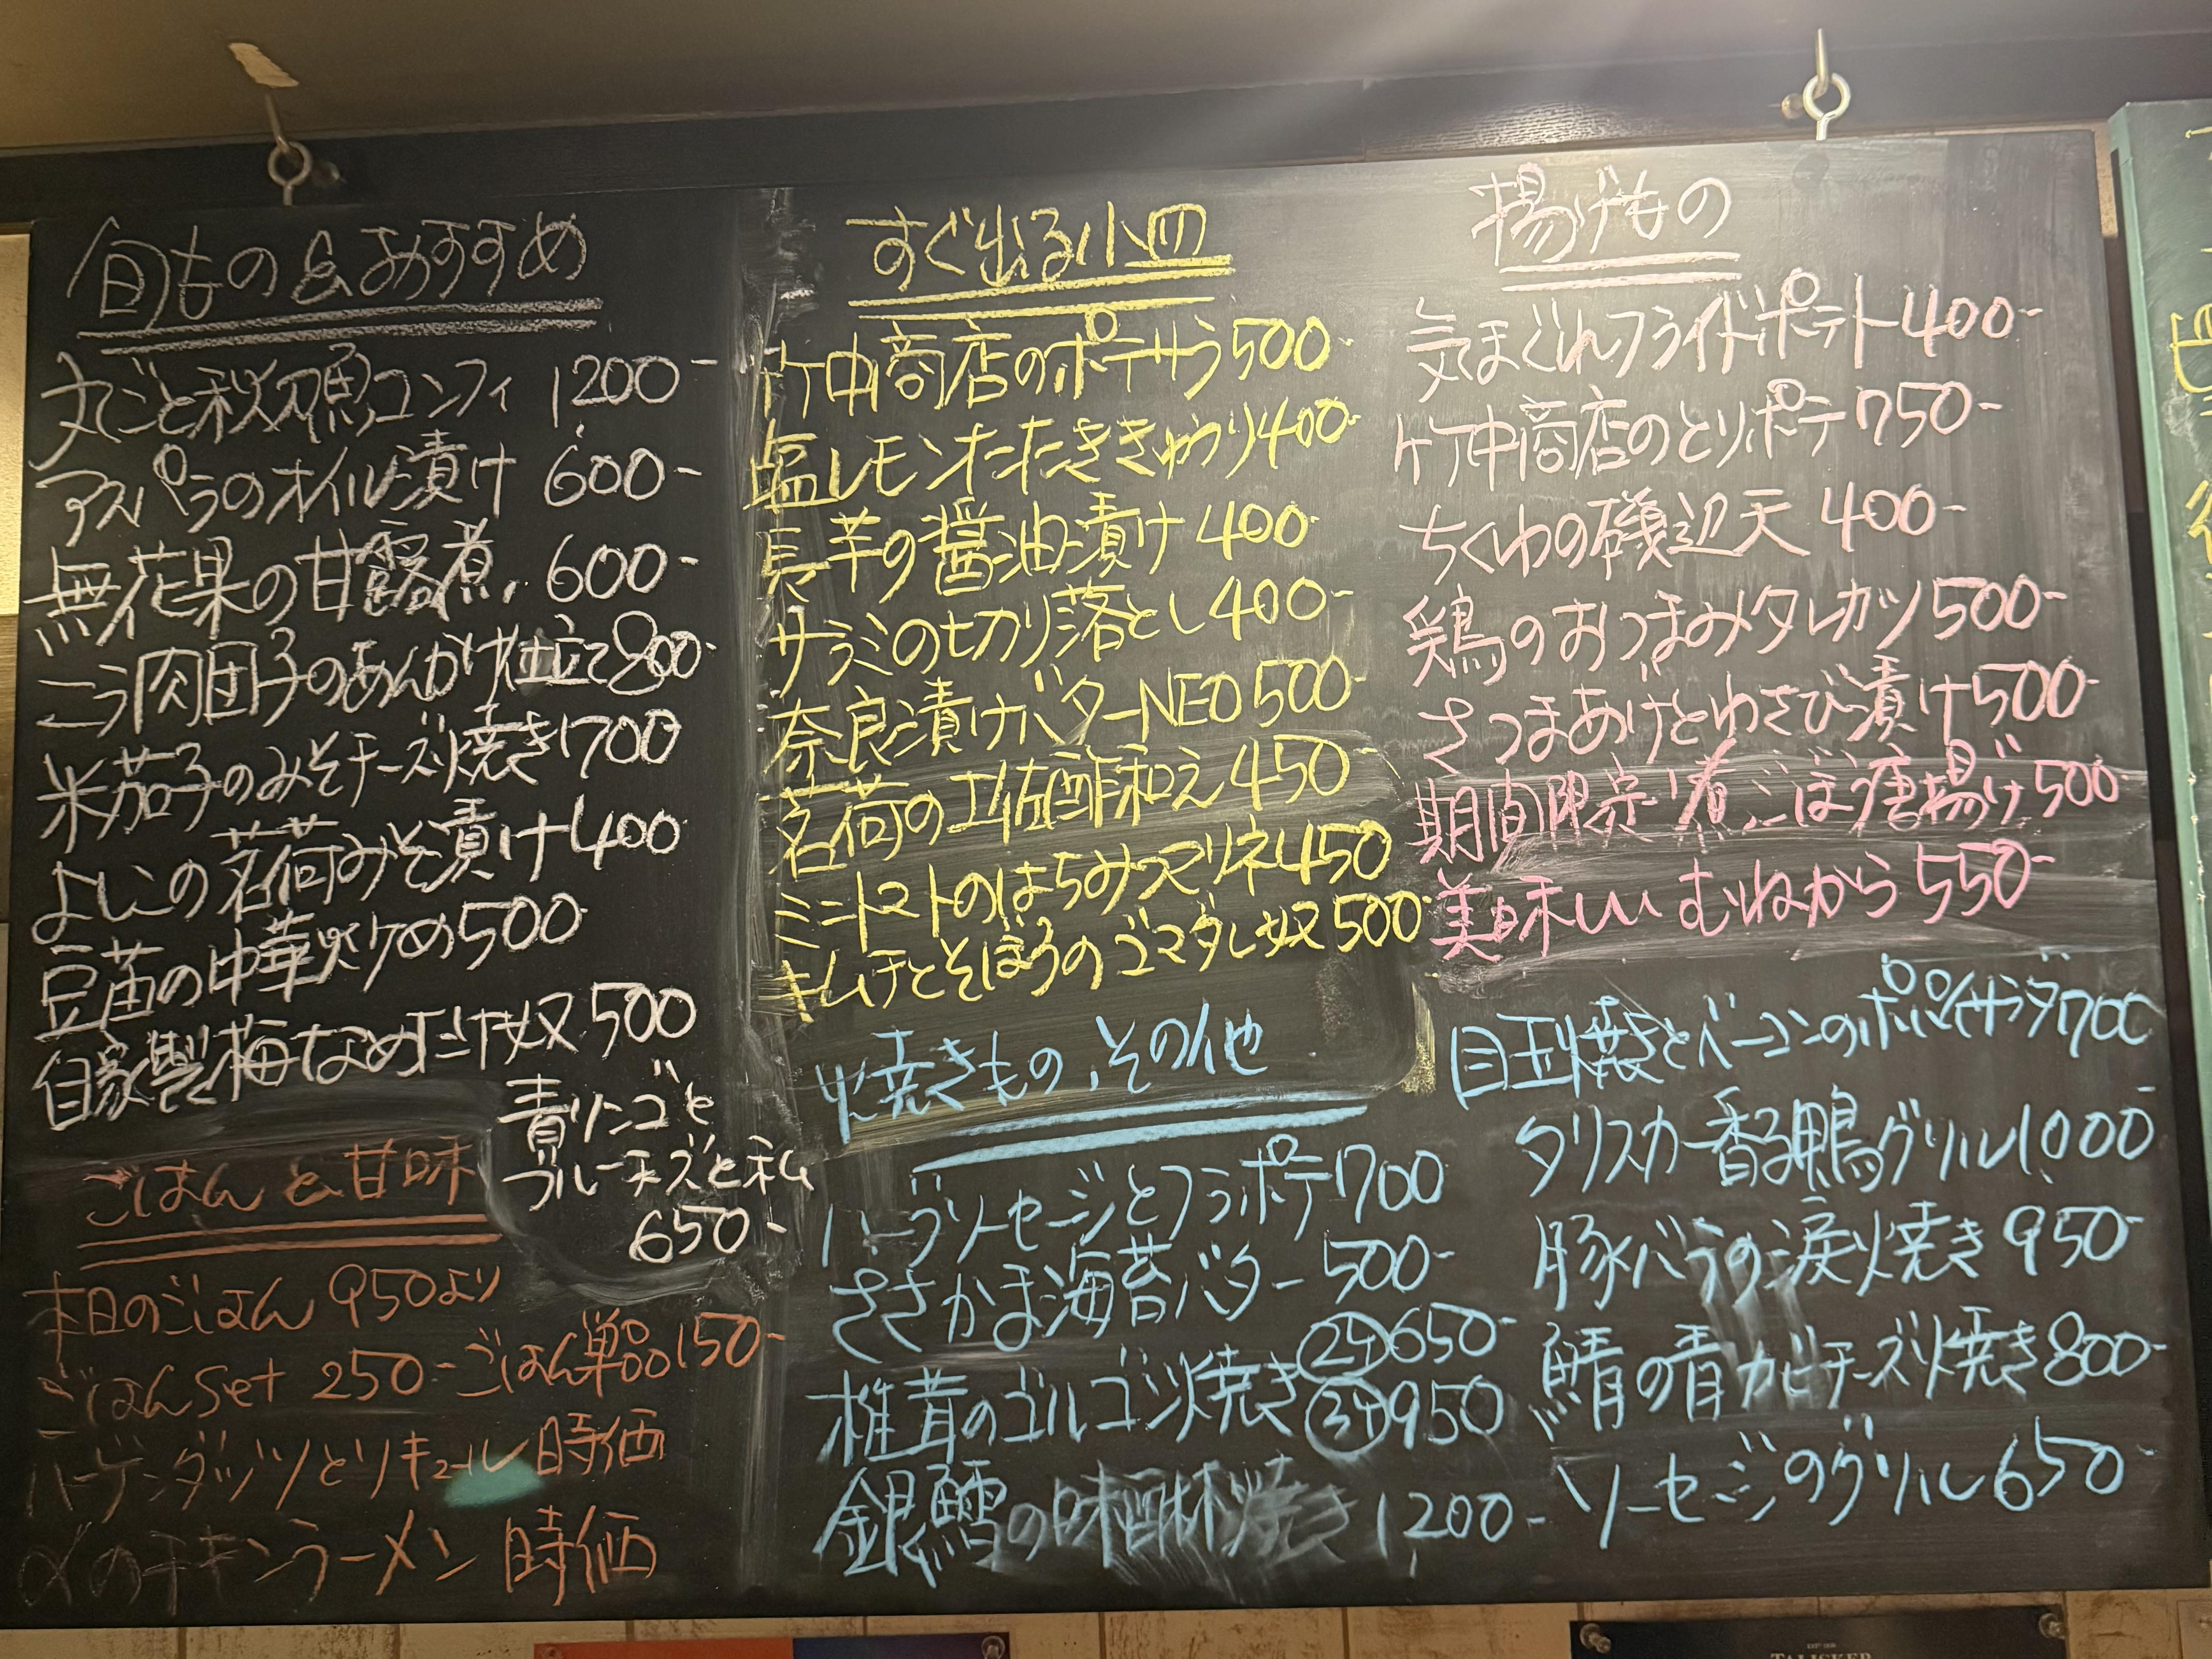 旬もの&おすすめ
丸ごと秋刀魚コンフィ 1200-
アスパラのオイル漬け 600-
無花果の甘露煮 600-
こう肉団子のあんかけ仕立て 800-
米茄子のみそチーズ焼き 700
よしこの茗荷みそ漬け 400
豆苗の中華炒め 500-
自家製梅なめ茸奴 500
青リンゴと
ブルーチーズと私
650-
ごはんと甘味
本日のごはん 950より
ごはんset 250- ごはん単品 150-
ハーゲンダッツとリキュール 時価
〆のチキンラーメン 時価
すぐ出る小皿
竹中商店のポテサラ 500-
塩レモンたたききゅうり 400-
長芋の醤油漬け 400-
サラミの切り落とし 400-
奈良漬けバターNEO 500-
茗荷の土佐酢和え 450
ミニトマトのはちみつマリネ 450
キムチとそぼろのゴマダレ奴 500-
焼きもの、その他
ハーブソーセージとフラポテ 700
ささかま海苔バター 500-
椎茸のゴルゴンゾ焼き ②ケ 650-
③ケ 950
銀鱈の味醂焼き 1200-
揚げもの
気まぐれフライドポテト 400-
竹中商店のとりポテ 750-
ちくわの磯辺天 400-
鶏のおつまみタレカツ 500-
さつまあげとわさび漬け 500-
期間限定!煮ごぼう唐揚げ 500-
美味しい むねから 550-
目玉焼きとベーコンのポパイサラダ 700
タリスカー香る鴨グリル 1000
豚バラの涙焼き 950-
鯖の青カビチーズ焼き 800-
ソーセージのグリル 650-
TALISKER